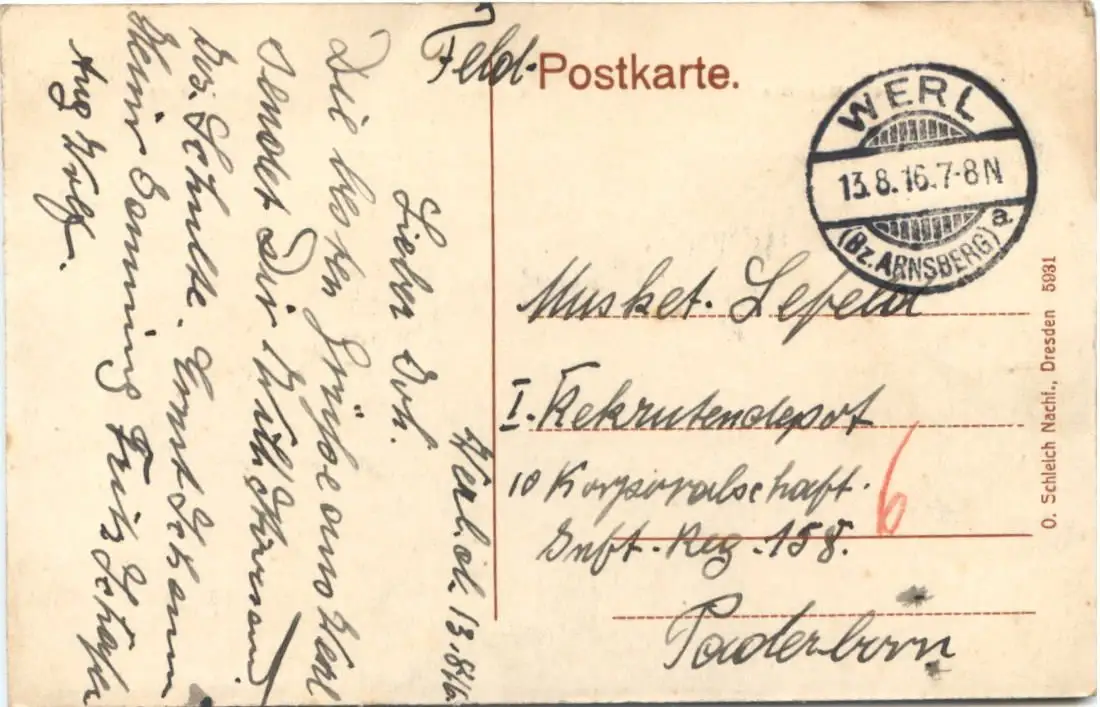 Feld-Postkarte.
WERL
13.8.16.7-8N
(Bz. ARNSBERG) a.
Musket. Lefeld
I. Rekrutendepot
10 Korporalschaft.
Inft. Reg. 158.
Paderborn
6
O. Schleich Nachf., Dresden 5931
Werl. d. 13.8.16
Lieber Joh.
Die besten Grüße aus Werl
sendet Dir Wilh.
Jos. Schulte. Ernst Schamm
Heinr Fritz Schäfer
Aug Wolf.